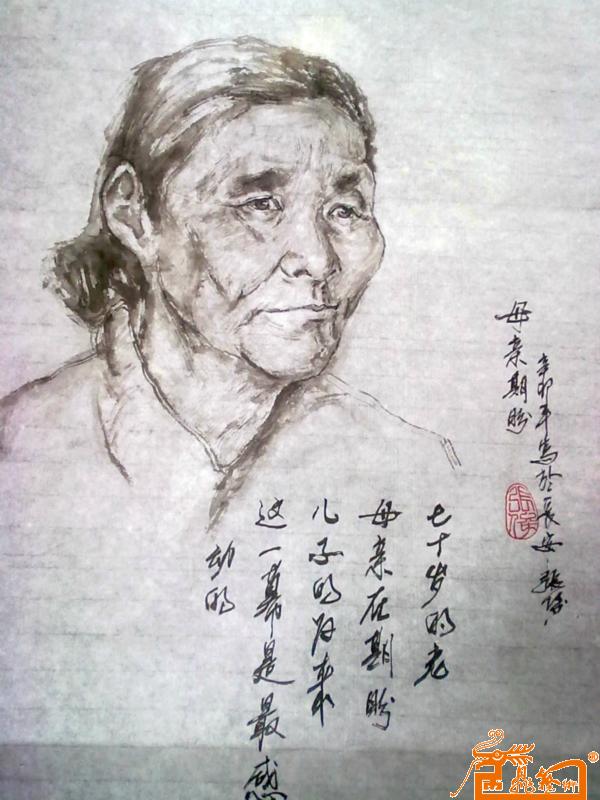 母亲期盼
辛卯年写於長安 張
七十岁的老
母亲在期盼
儿子的归来
这一幕是最感
动的